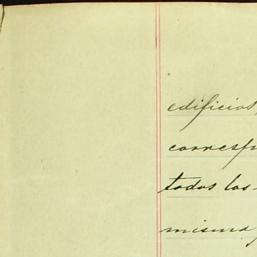 edificios
corresp
todos los
misma